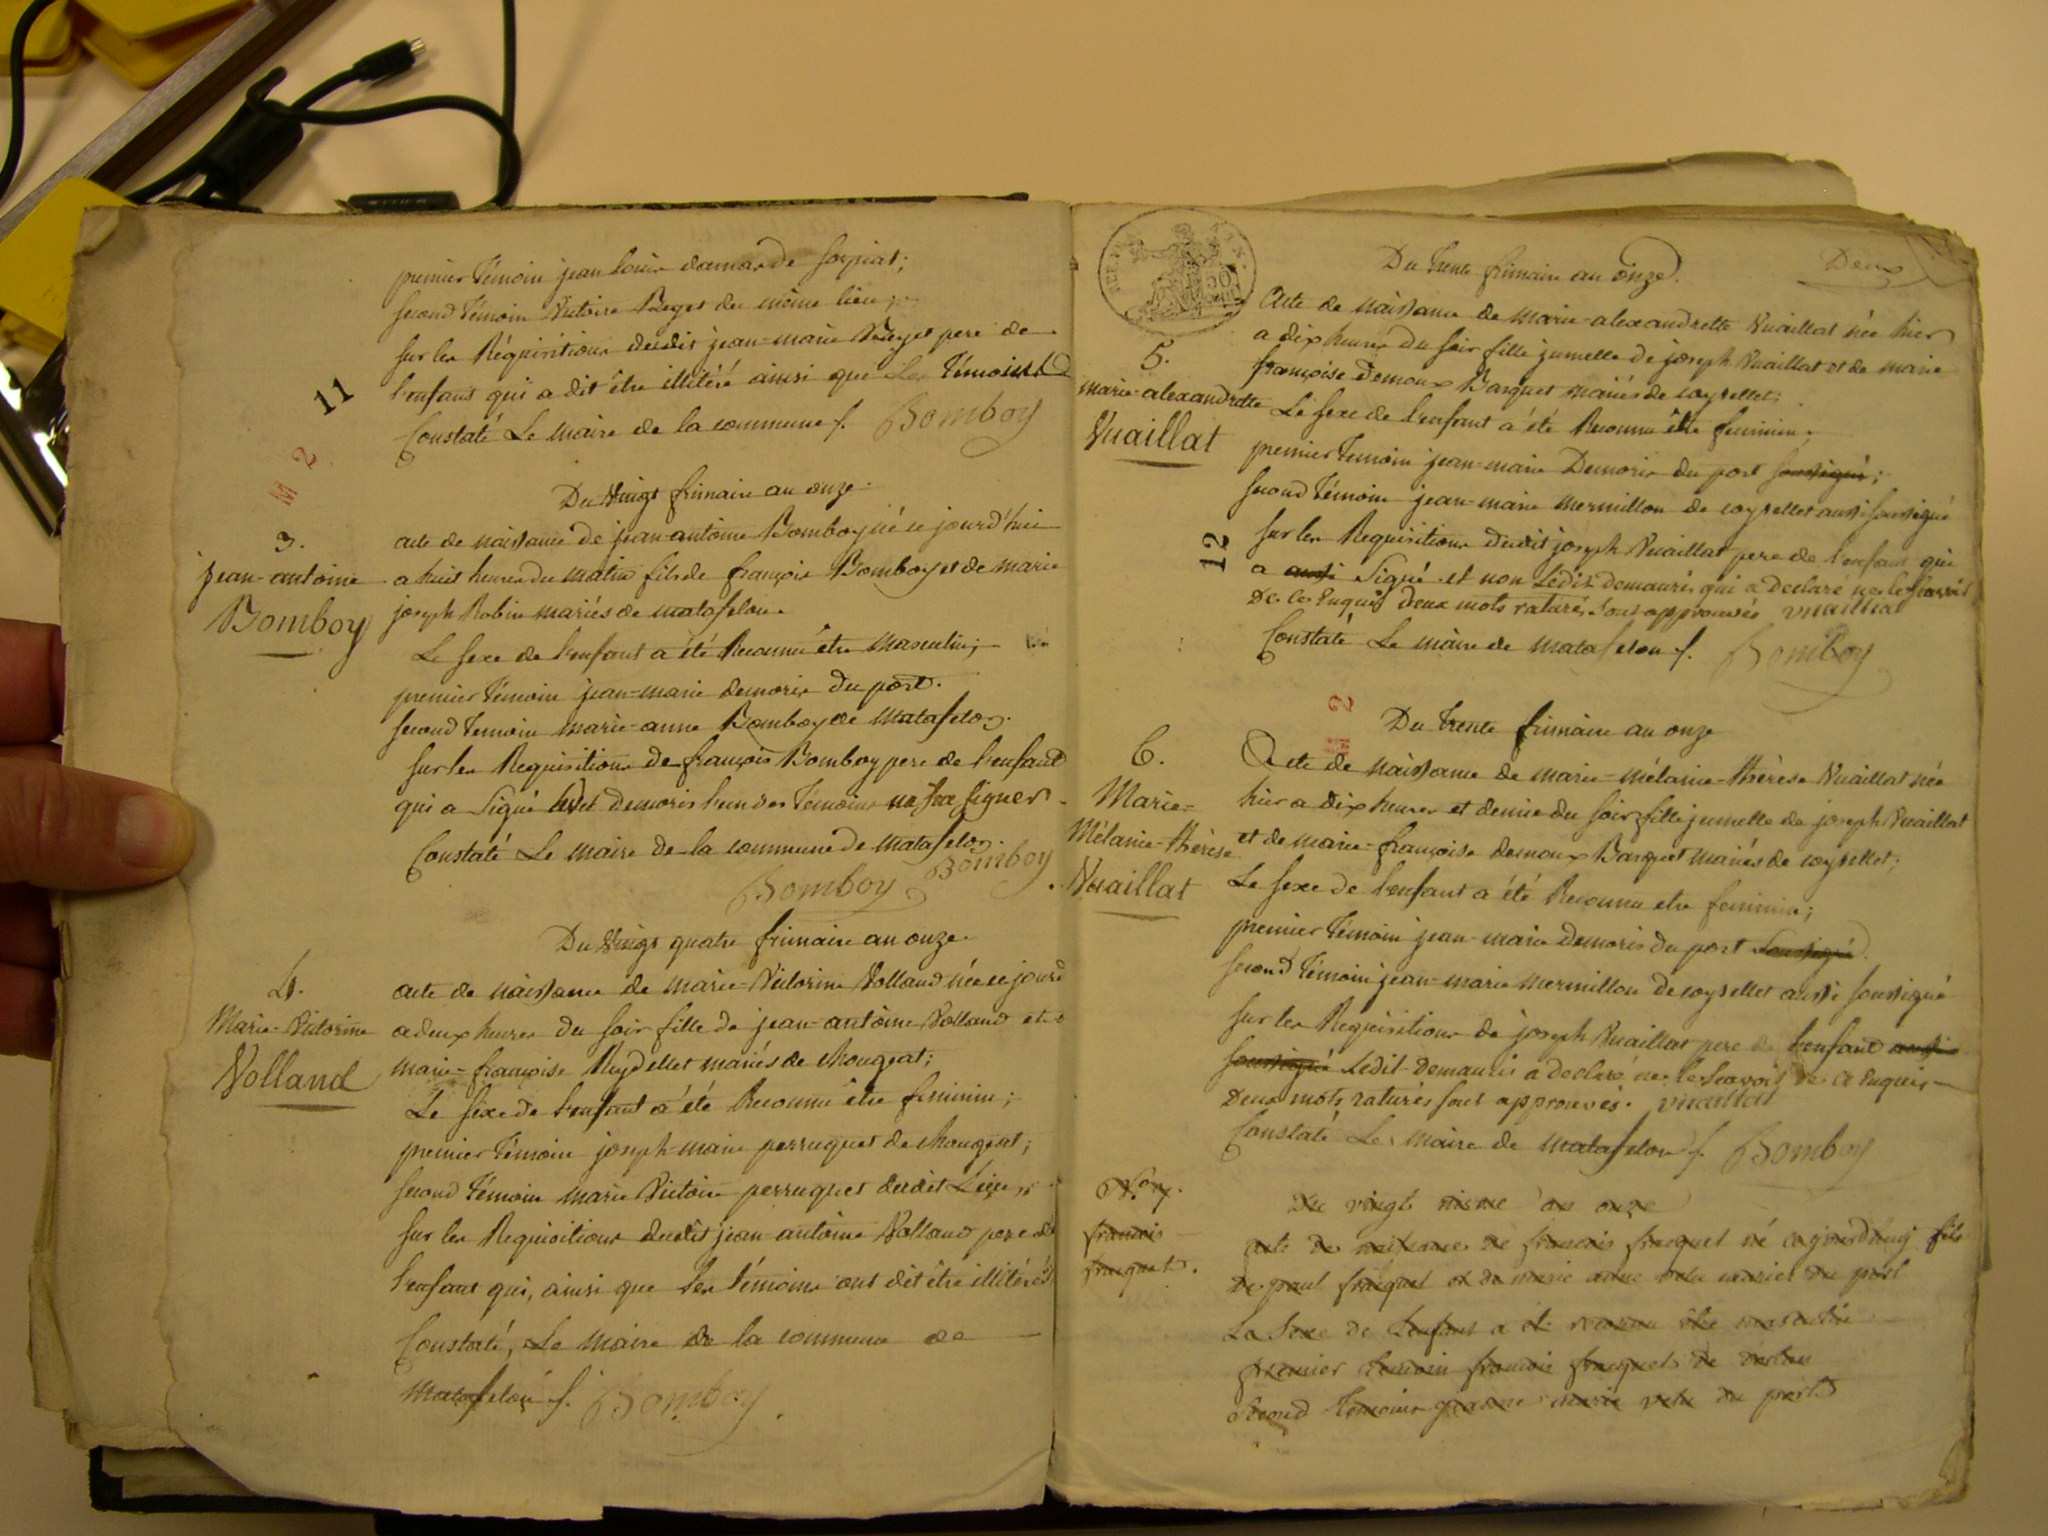 premier témoin jean louis damas de sorpiat;
second témoin Victoire Reyet du même lieu
sur les Réquisitions dudit jean-marie Reyet pere de
l'enfant qui a dit être illitéré ainsi que les témoins
Constaté Le maire de la commune f. Bomboy
11
M 2
Du Vingt frimaire an onze.
3.
jean-antoine
Bomboy
acte de naissance de jean-antoine Bomboy né ce jourd'hui
a huit heures du matin fils de françois Bomboy et de marie
joseph Robin mariés de matafelon.
Le sexe de l'enfant a été Reconnu être masculin;
premier témoin jean-marie demoris du port.
second temoin marie-anne Bomboy de Matafelon.
sur les Requisitions de françois Bomboy pere de l'enfant
qui a Signé demoris l'un des témoins signer.
Constaté Le maire de la commune de matafelon.
Bomboy Bomboy
Du Vingt quatre frimaire an onze.
4.
Marie-Victorine
Volland
acte de naissance de marie-Victorine Volland née ce jourd
a deux heures du soir fille de jean-antoine Volland et d
marie-françoise Reydellet mariés de chougeat;
Le sexe de l'enfant a été Reconnu être féminin;
premier témoin joseph-marie perruquet de chougeat;
second témoin marie Victoire perruquet dudit Lieu,
sur les Requisitions dudit jean-antoine Volland pere de
l'enfant qui, ainsi que les témoins ont dit être illitérés
Constaté, Le Maire de la commune de
Matafelon f. Bomboy
50
Deux
Du trente frimaire an onze.
5.
marie-alexandrette
Vuaillat
Acte de naissance de marie-alexandrette Vuaillat née hier
a dix heures du soir fille jumelle de joseph Vuaillat et de marie
françoise demoux Barquet mariés de coyssellet;
Le sexe de l'enfant a été Reconnu être feminin;
premier temoin jean-marie Demoris du port soussigné;
second témoin jean-marie mermillon de coysellet aussi soussigné
12
sur les Requisitions dudit joseph Vuaillat pere de l'enfant qui
a aussi Signé et non Ledit demauris qui a declaré ne le savoir
De ce Enquis deux mots raturés sont approuvés vuaillat
Constaté Le maire de matafelon f. Bomboy
M 2
Du trente frimaire an onze
6.
Marie-
Mélanie-thérèse
Vuaillat
Acte de naissance de marie-mélanie-thérèse Vuaillat née
hier a dix heures et demie du soir fille jumelle de joseph Vuaillat
et de marie-françoise demoux Barquet mariés de coysellet;
Le sexe de l'enfant a été Reconnu etre feminin;
premier témoin jean-marie Demoris du port soussigné
second témoin jean-marie mermillon de coysellet aussi soussigné
sur les Requisitions de joseph Vuaillat pere de l'enfant aussi
soussigné Ledit Demauris a declaré ne le scavoir de ce enquis
Deux mots raturés sont approuvés. vuaillat
Constaté Le maire de matafelon f. Bomboy
françois
fracquet.
Du vingt nisme an onze
acte de naissance de francois fracquet né aujourdhuy fils
de paul fracquet et de marie anne mariés du port
Le Sexe de Lenfant a été reconnu être masculin
premier temoin francois fracquet de
second temoin marie du port